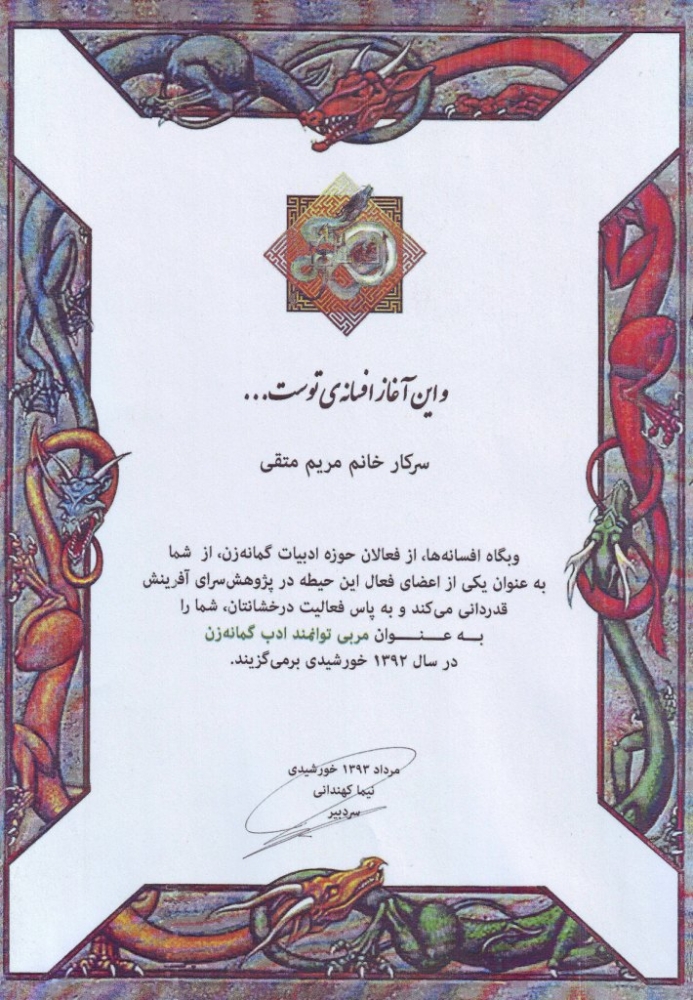 و این آغاز افسانه‌ی توست...
سرکار خانم مریم متقی
وبگاه افسانه‌ها، از فعالان حوزه ادبیات گمانه‌زن، از شما
به عنوان یکی از اعضای فعال این حیطه در پژوهش‌سرای آفرینش
قدردانی می‌کند و به پاس فعالیت درخشانتان، شما را
به عنـــوان مربی توانمند ادب گمانه‌زن
در سال ۱۳۹۲ خورشیدی برمی‌گزیند.
مرداد ۱۳۹۳ خورشیدی
نیما کهندانی
سردبیر